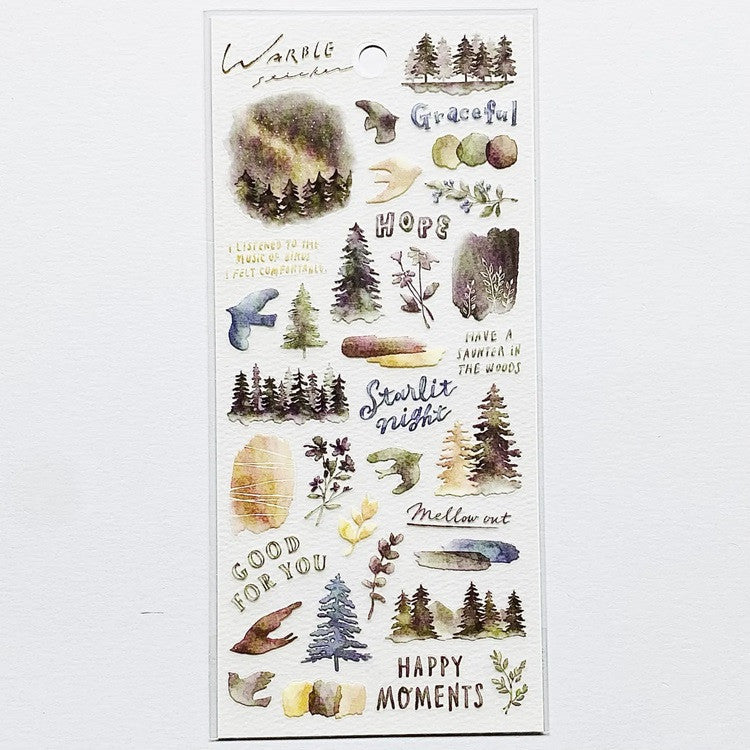 WARBLE
sticker
Graceful
HOPE
I LISTENED TO THE
MUSIC OF BIRDS
I FELT COMFORTABLE.
HAVE A
SAUNTER IN
THE WOODS
Starlit
night
Mellow out
GOOD
FOR YOU
HAPPY
MOMENTS